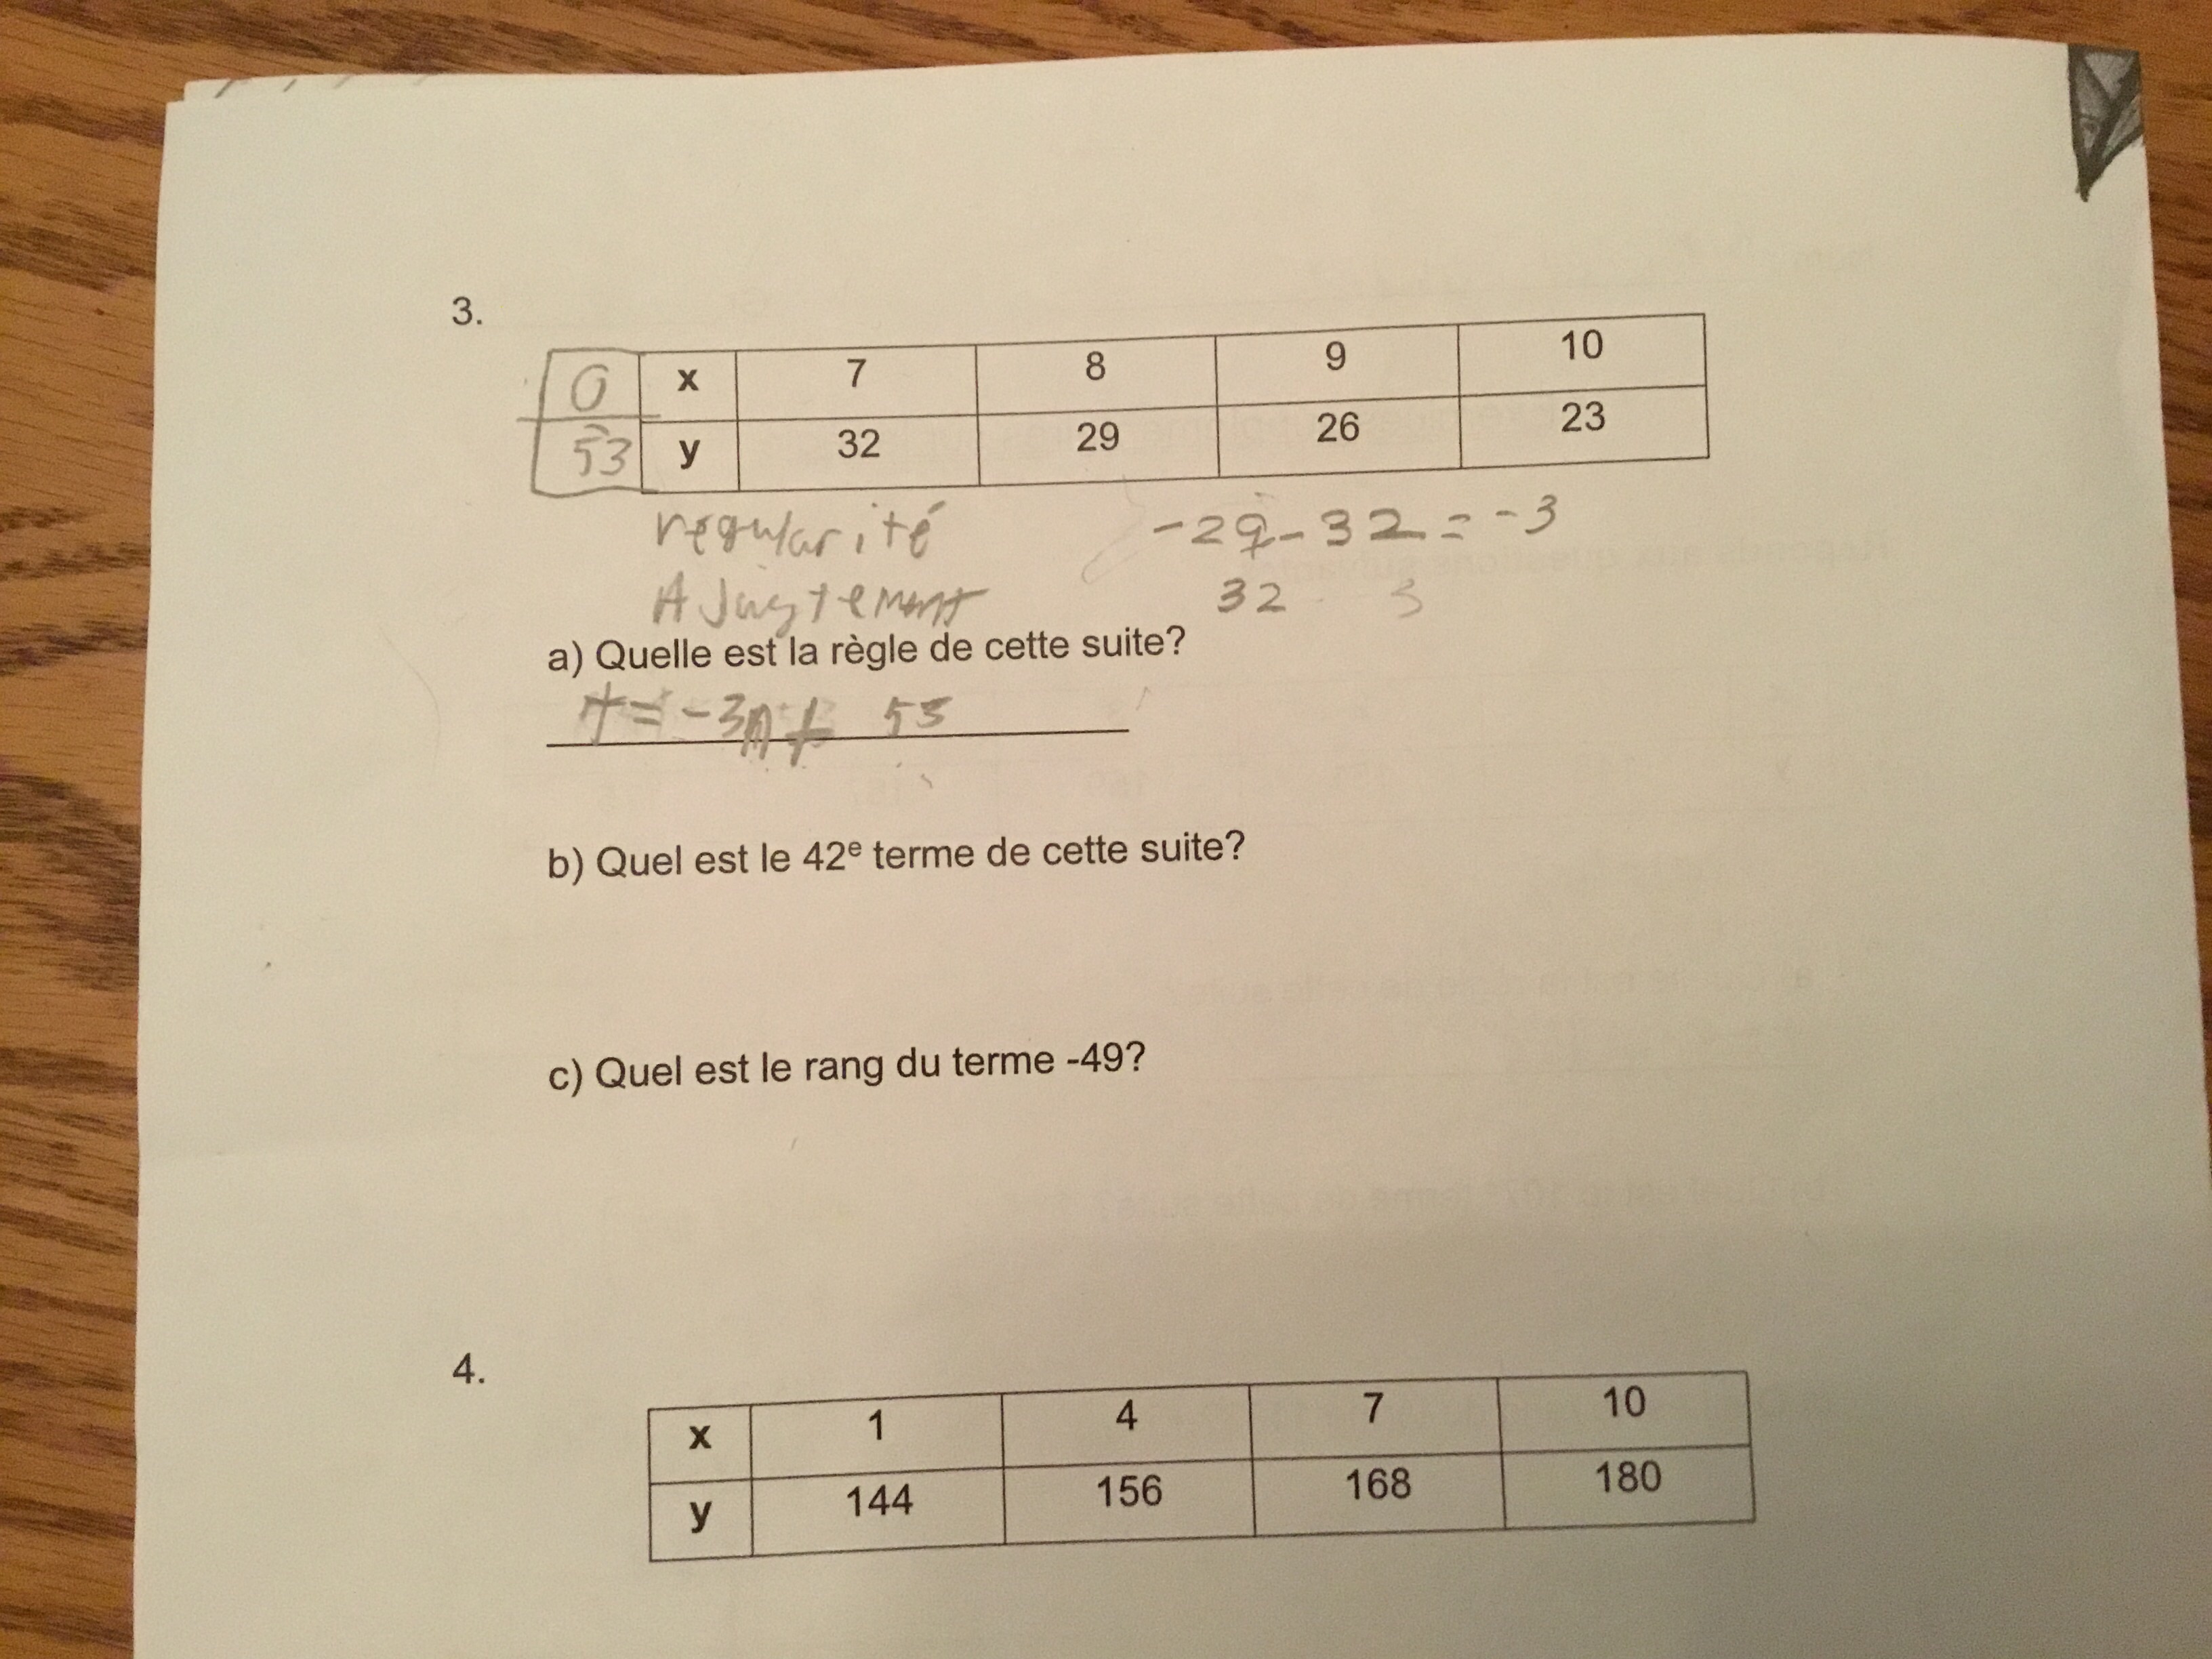 3.
0 x 7 8 9 10
53 y 32 29 26 23
regularité -29-32=-3
Ajustement 32 3
a) Quelle est la règle de cette suite?
t=-3n+ 53
b) Quel est le 42e terme de cette suite?
c) Quel est le rang du terme -49?
4.
x 1 4 7 10
y 144 156 168 180